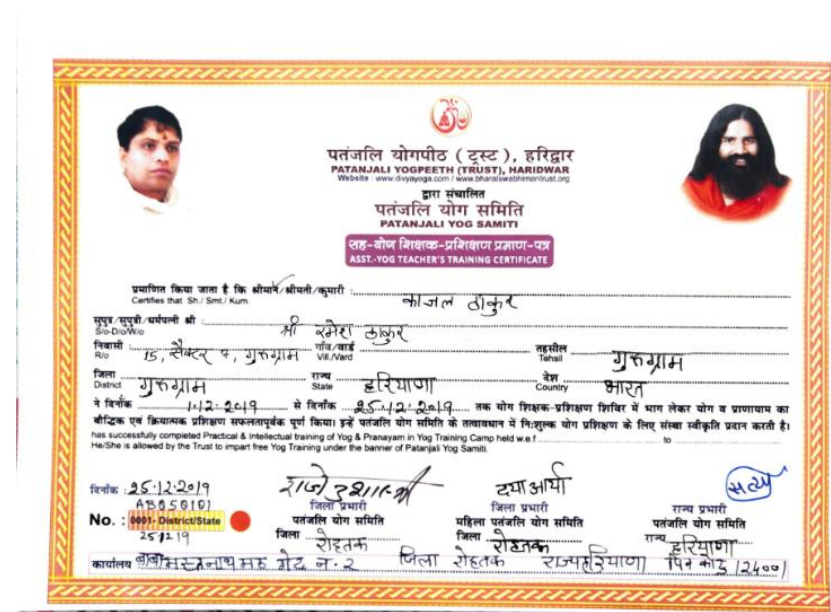 पतंजलि योगपीठ ( ट्रस्ट ), हरिद्वार
PATANJALI YOGPEETH (TRUST), HARIDWAR
Website : www.divyayoga.com / www.bharatswabhimantrust.org
द्वारा संचालित
पतंजलि योग समिति
PATANJALI YOG SAMITI
सह-योग शिक्षक-प्रशिक्षण प्रमाण-पत्र
ASST.-YOG TEACHER'S TRAINING CERTIFICATE
प्रमाणित किया जाता है कि श्रीमान/श्रीमती/कुमारी : काजल ठाकुर
Certifies that Sh./ Smt./ Kum.
सुपुत्र/सुपुत्री/धर्मपत्नी श्री : श्री रमेश ठाकुर
S/o-D/o/W/o
निवासी 15, सैक्टर 4, गुरुग्राम गाँव/वार्ड तहसील गुरुग्राम
R/o Vill./Vard Tehsil
जिला गुरुग्राम राज्य हरियाणा देश भारत
District State Country
ने दिनाँक 1.12.2019 से दिनाँक 25.12.2019 तक योग शिक्षक-प्रशिक्षण शिविर में भाग लेकर योग व प्राणायाम का
बौद्धिक एवं क्रियात्मक प्रशिक्षण सफलतापूर्वक पूर्ण किया। इन्हें पतंजलि योग समिति के तत्वावधान में निःशुल्क योग प्रशिक्षण के लिए संस्था स्वीकृति प्रदान करती है।
has successfully completed Practical & Intellectual training of Yog & Pranayam in Yog Training Camp held w.e.f to
He/She is allowed by the Trust to impart free Yog Training under the banner of Patanjali Yog Samiti.
दिनाँक : 25.12.2019 दया आर्या सत्य
AB050101 जिला प्रभारी जिला प्रभारी राज्य प्रभारी
No. : 0001- District/State पतंजलि योग समिति महिला पतंजलि योग समिति पतंजलि योग समिति
25 12 19 जिला रोहतक जिला रोहतक राज्य हरियाणा
कार्यालय मठ गेट न. २ जिला रोहतक राज्य हरियाणा पिन कोड 124001